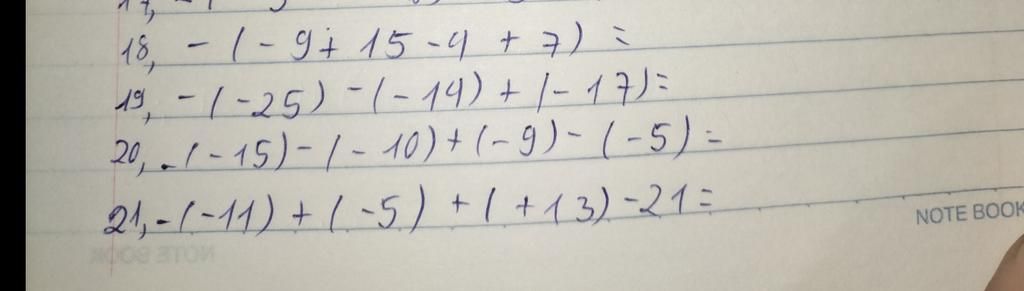 17,
18, - ( - 9 + 15 - 4 + 7 ) =
19, - ( - 25 ) - ( - 14 ) + ( - 17 ) =
20, - ( - 15 ) - ( - 10 ) + ( - 9 ) - ( - 5 ) =
21, - ( - 11 ) + ( - 5 ) + ( + 13 ) - 21 =
NOTE BOOK